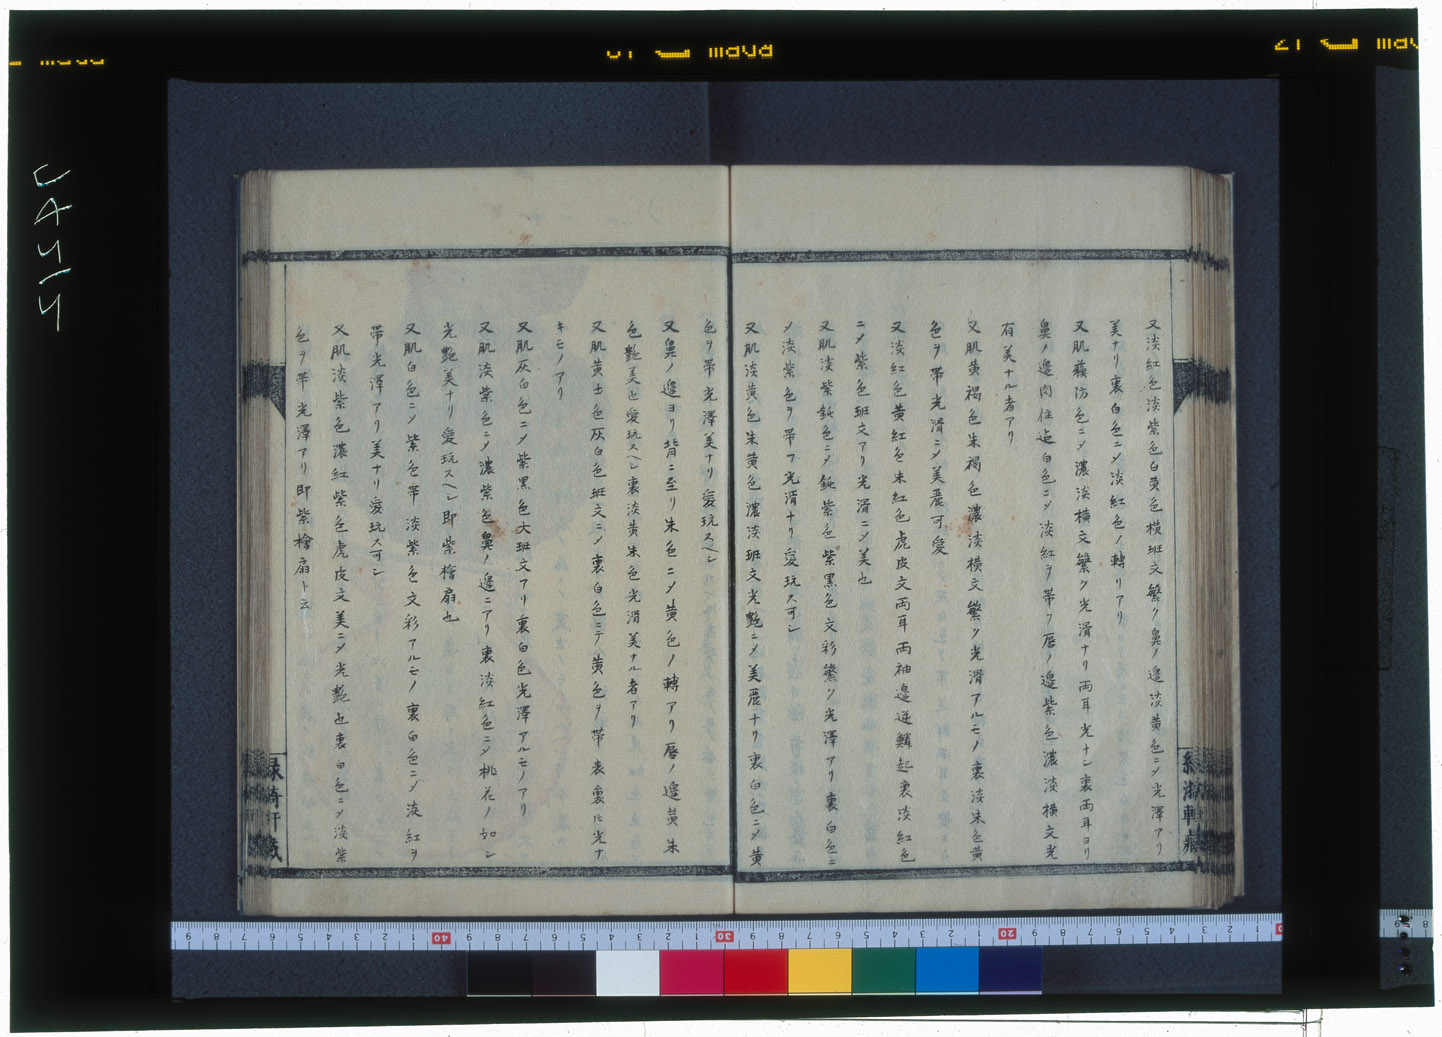 又淡紅色淡紫色白黄色横班文繁ク鼻ノ邉淡黄色ニ〆光澤アリ
美ナリ裏白色ニ〆淡紅色ノ轉リアリ
色ニ〆濃淡横文繁ク光滑ナリ両耳光ナシ裏両耳ヨリ
鼻ノ邉肉住迠白色ニ〆淡紅ヲ帯フ唇ノ邉紫色濃淡横文光
有美ナル者アリ
又肌黄褐色朱褐色濃淡横文繁ク光滑アルモノ裏淡朱色黄
色ヲ帯光滑ニ〆美麗可愛
又淡紅色黄紅色朱紅色虎皮文両耳両袖邉逆鱗起裏淡紅色
ニ〆紫色班文アリ光滑ニ〆美也
又肌淡紫鈍色ニ〆鈍紫色紫黒色文彩繁ク光澤アリ裏白色ニ
〆淡紫色ヲ帯フ光滑ナリ愛玩ス可シ
又肌淡黄色朱黄色濃淡班文光艶ニ〆美麗ナリ裏白色ニ〆黄
色ヲ帯光澤美ナリ愛玩スヘシ
又鼻ノ邉ヨリ背ニ至リ朱色ニ〆黄色ノ轉アリ唇ノ邉黄朱
色艶美也愛玩スヘシ裏淡黄朱色光滑美ナル者アリ
又肌黄土色灰白色班文ニ〆裏白色ニテ黄色ヲ帯表裏圧光ナ
キモノアリ
又肌灰白色ニ〆紫黒色大班文アリ裏白色光澤アルモノアリ
又肌淡紫色ニ〆濃紫色鼻ノ邉ニアリ裏淡紅色ニ〆桃花ノ如シ
光艶美ナリ愛玩スヘシ即紫檜扇也
又肌白色ニ〆紫色帯淡紫色文彩アルモノ裏白色ニ〆淡紅ヲ
帯光澤アリ美ナリ愛玩ス可シ
又肌淡紫色濃紅紫色虎皮文美ニ〆光艶也裏白色ニ〆淡紫
色ヲ帯光澤アリ即紫檜扇ト云